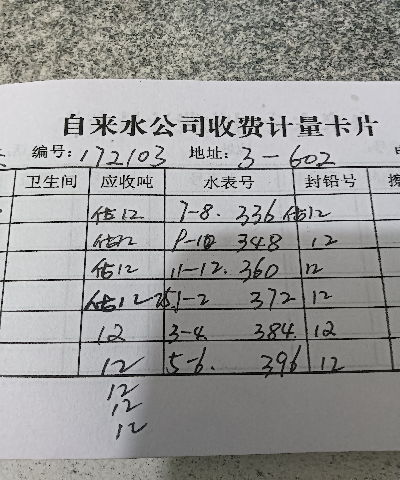 自来水公司收费计量卡片
编号:172103 地址:3-602
卫生间 应收吨 水表号 封铅号
估12 7-8. 336 估12
估12 9-10 348 12
估12 11-12. 360 12
估12 1-2 372 12
12 3-4. 384. 12
12 5-6. 396 12
12
12
12